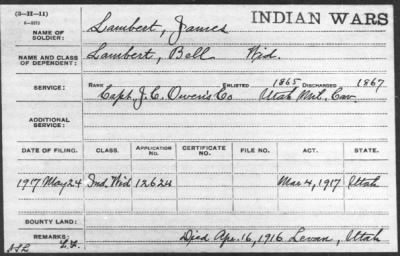 (3-H-11)
6-2572
INDIAN WARS
NAME OF SOLDIER: Lambert, James
NAME AND CLASS OF DEPENDENT: Lambert, Bell Wid.
SERVICE: RANK ENLISTED 1865 DISCHARGED 1867
Capt. J. C. Owen's Co Utah Mil. Cav.
ADDITIONAL SERVICE:
DATE OF FILING. CLASS. APPLICATION NO. CERTIFICATE NO. FILE NO. ACT. STATE.
1917 May 24 Ind. Wid 12624 Mar 4, 1917 Utah
BOUNTY LAND:
REMARKS: Died Apr. 16, 1916 Levan, Utah